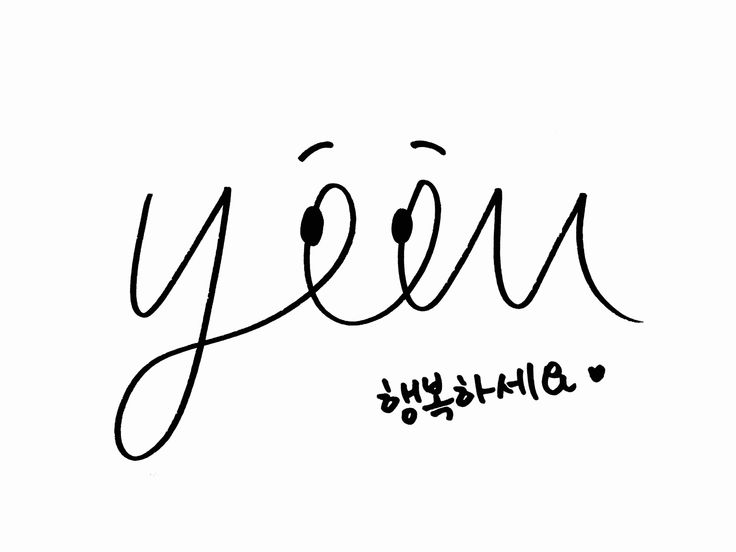 yeen
행복하세요 ♥